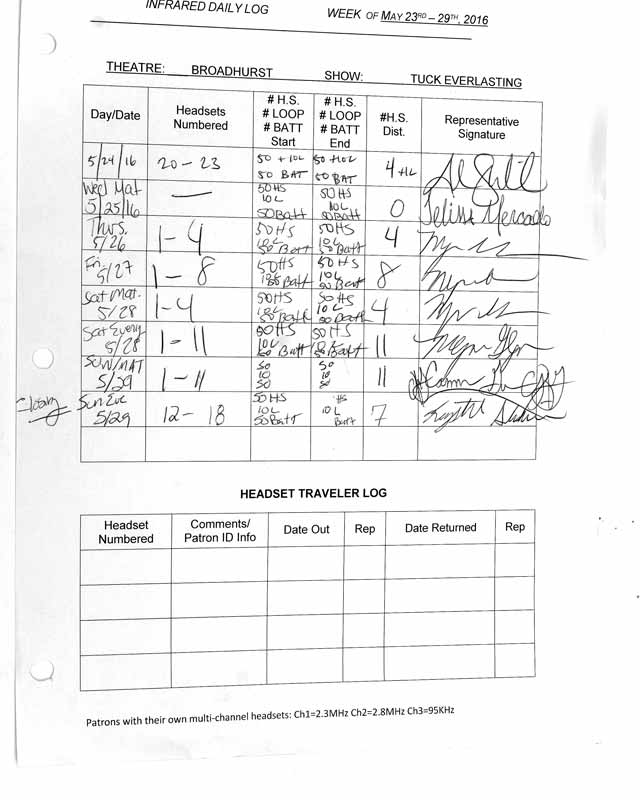 INFRARED DAILY LOG WEEK OF MAY 23RD – 29TH, 2016
THEATRE: BROADHURST SHOW: TUCK EVERLASTING
Day/Date Headsets Numbered # H.S. # LOOP # BATT Start # H.S. # LOOP # BATT End #H.S. Dist. Representative Signature
5/24/16 20 – 23 50 + 10L 50 BAT 50 + 10L 50 BAT 4 HL
Wed Mat 5/25/16 — 50HS 10L 50Batt 50HS 10L 50Batt 0 Mercado
Thurs. 5/26 1 – 4 50HS 10L 50 Batt 50HS 10L 50 Batt 4
Fri 5/27 1 – 8 50HS Batt 50HS 10L 50 Batt 8
Sat Mat. 5/28 1 – 4 50HS 10L 50 Batt 50 HS 10L 50 Batt 4
Sat Every 5/28 1 – 11 50HS 10L 50 Batt 50HS Batt 11
SUN/MAT 5/29 1 – 11 50 10 50 50 10 50 11
Closing Sun Eve 5/29 12 – 18 50HS 10L 50Batt HS 10L Batt 7 Krystal
HEADSET TRAVELER LOG
Headset Numbered Comments/ Patron ID Info Date Out Rep Date Returned Rep
Patrons with their own multi-channel headsets: Ch1=2.3MHz Ch2=2.8MHz Ch3=95KHz